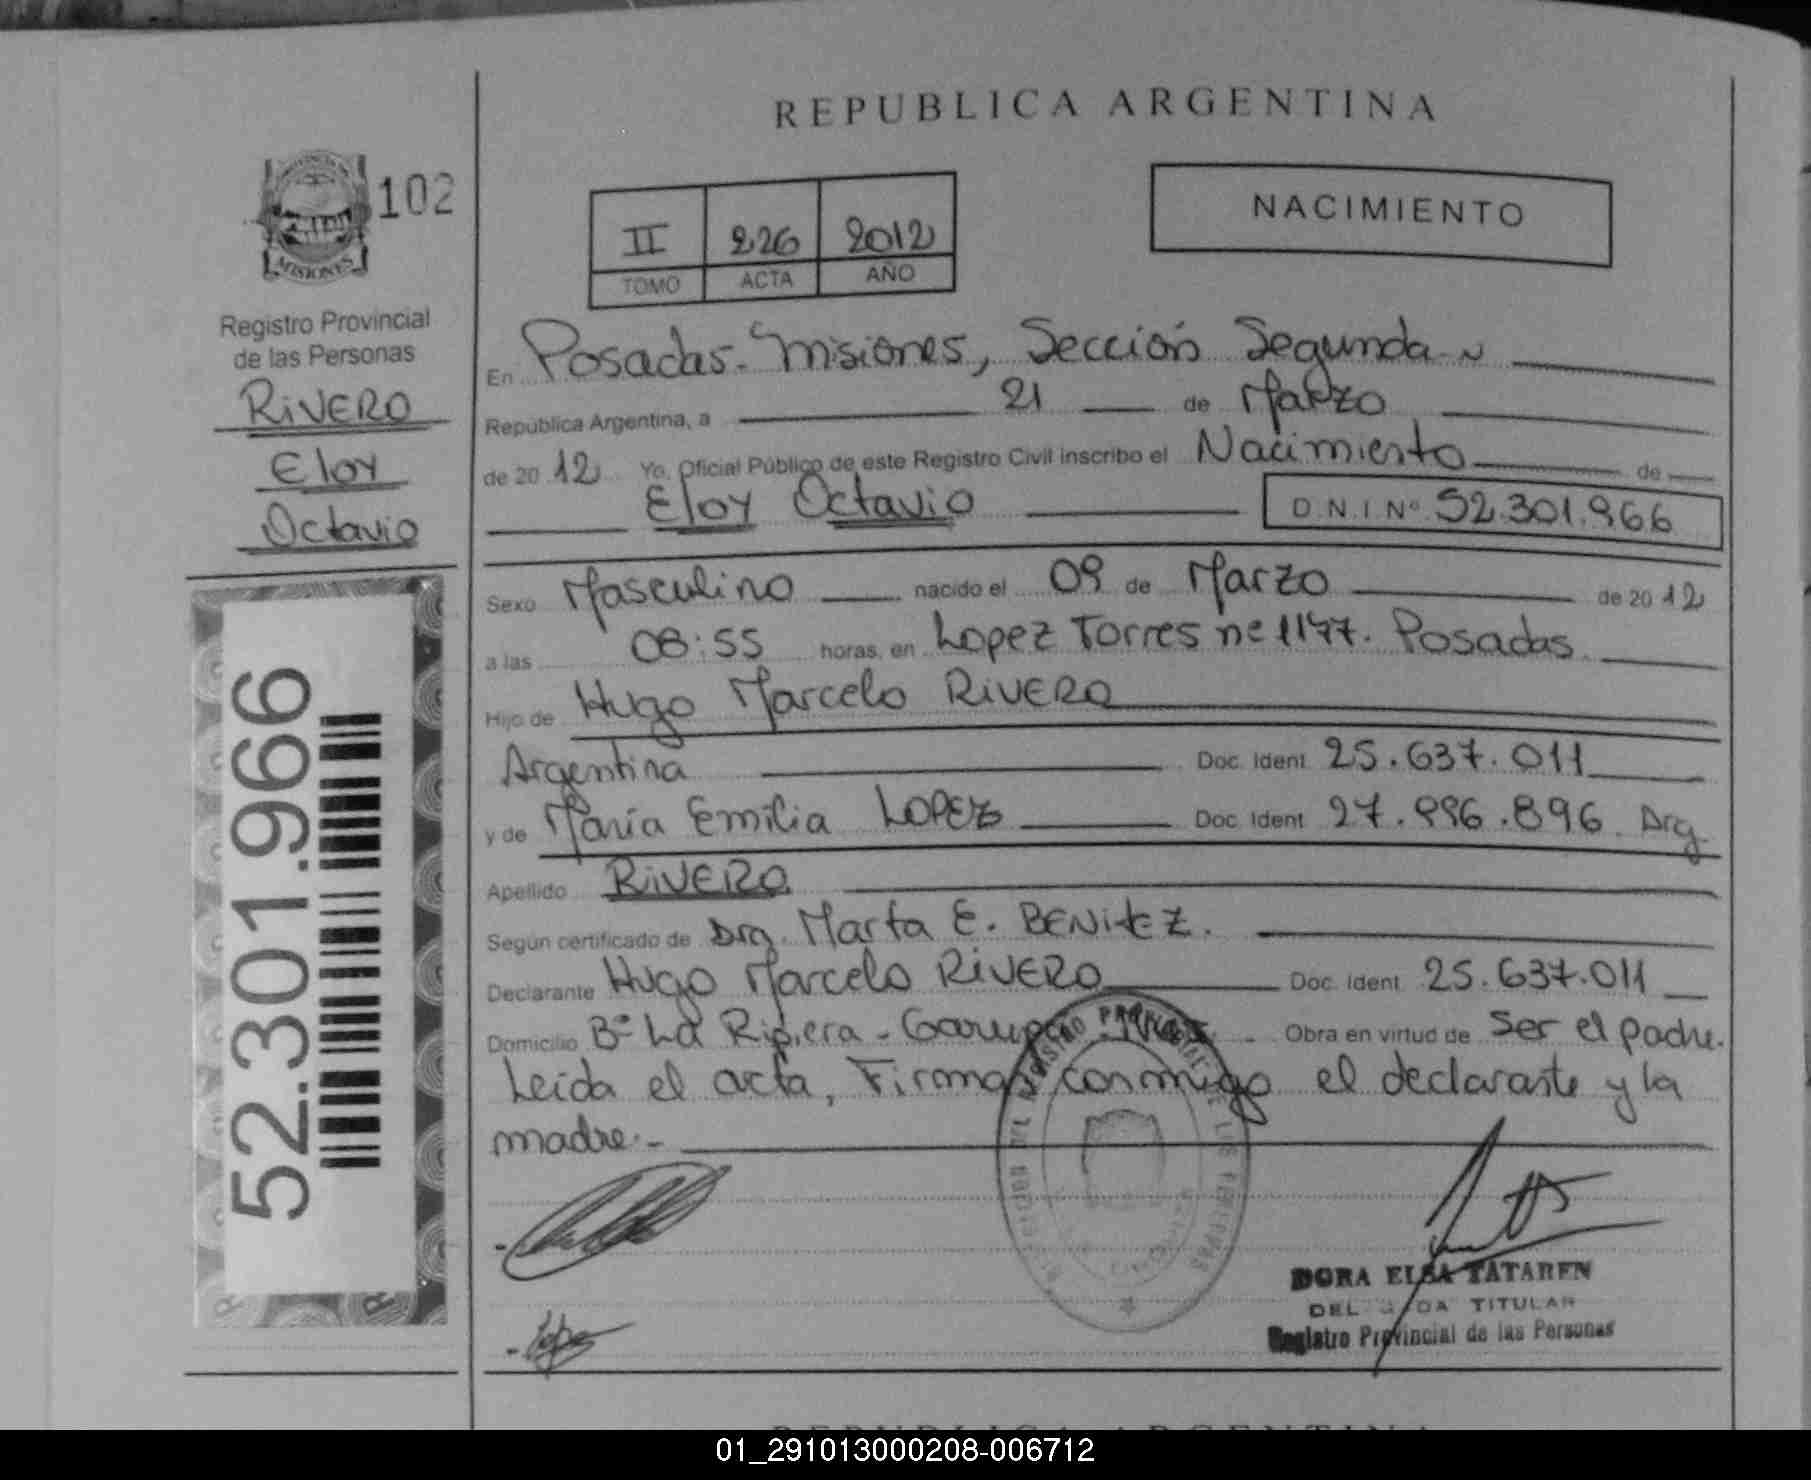 REPUBLICA ARGENTINA
MISIONES
102
Registro Provincial
de las Personas
RIVERO
Eloy
Octavio
52.301.966
II 226 2012
TOMO ACTA AÑO
NACIMIENTO
En Posadas - Misiones, Sección Segunda
República Argentina, a 21 de Marzo
de 20 12 Yo, Oficial Público de este Registro Civil inscribo el Nacimiento de
Eloy Octavio D.N.I Nº 52.301.966
Sexo Masculino nacido el 09 de Marzo de 20 12
a las 08:55 horas, en Lopez Torres nº 1177. Posadas
Hijo de Hugo Marcelo RIVERO
Argentina Doc. Ident. 25.637.011
y de María Emilia LOPEZ Doc. Ident. 27.996.896 Arg.
Apellido RIVERO
Según certificado de Dra. Marta E. BENITEZ.
Declarante Hugo Marcelo RIVERO Doc. Ident. 25.637.011
Domicilio Bº La Ripiera - Garupá - Obra en virtud de ser el padre.
Leída el acta, Firman conmigo el declarante y la
madre.-
DORA ELSA TATAREN
TITULAR
Registro Provincial de las Personas
01_291013000208-006712